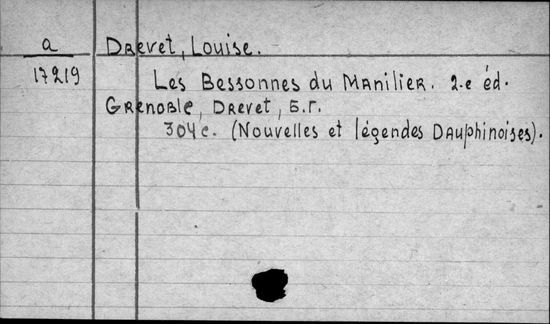 a
17219
Drevet, Louise.
Les Bessonnes du Manilier. 2-e éd.
Grenoble, Drevet, Б.г.
304 с. (Nouvelles et légendes Dauphinoises).